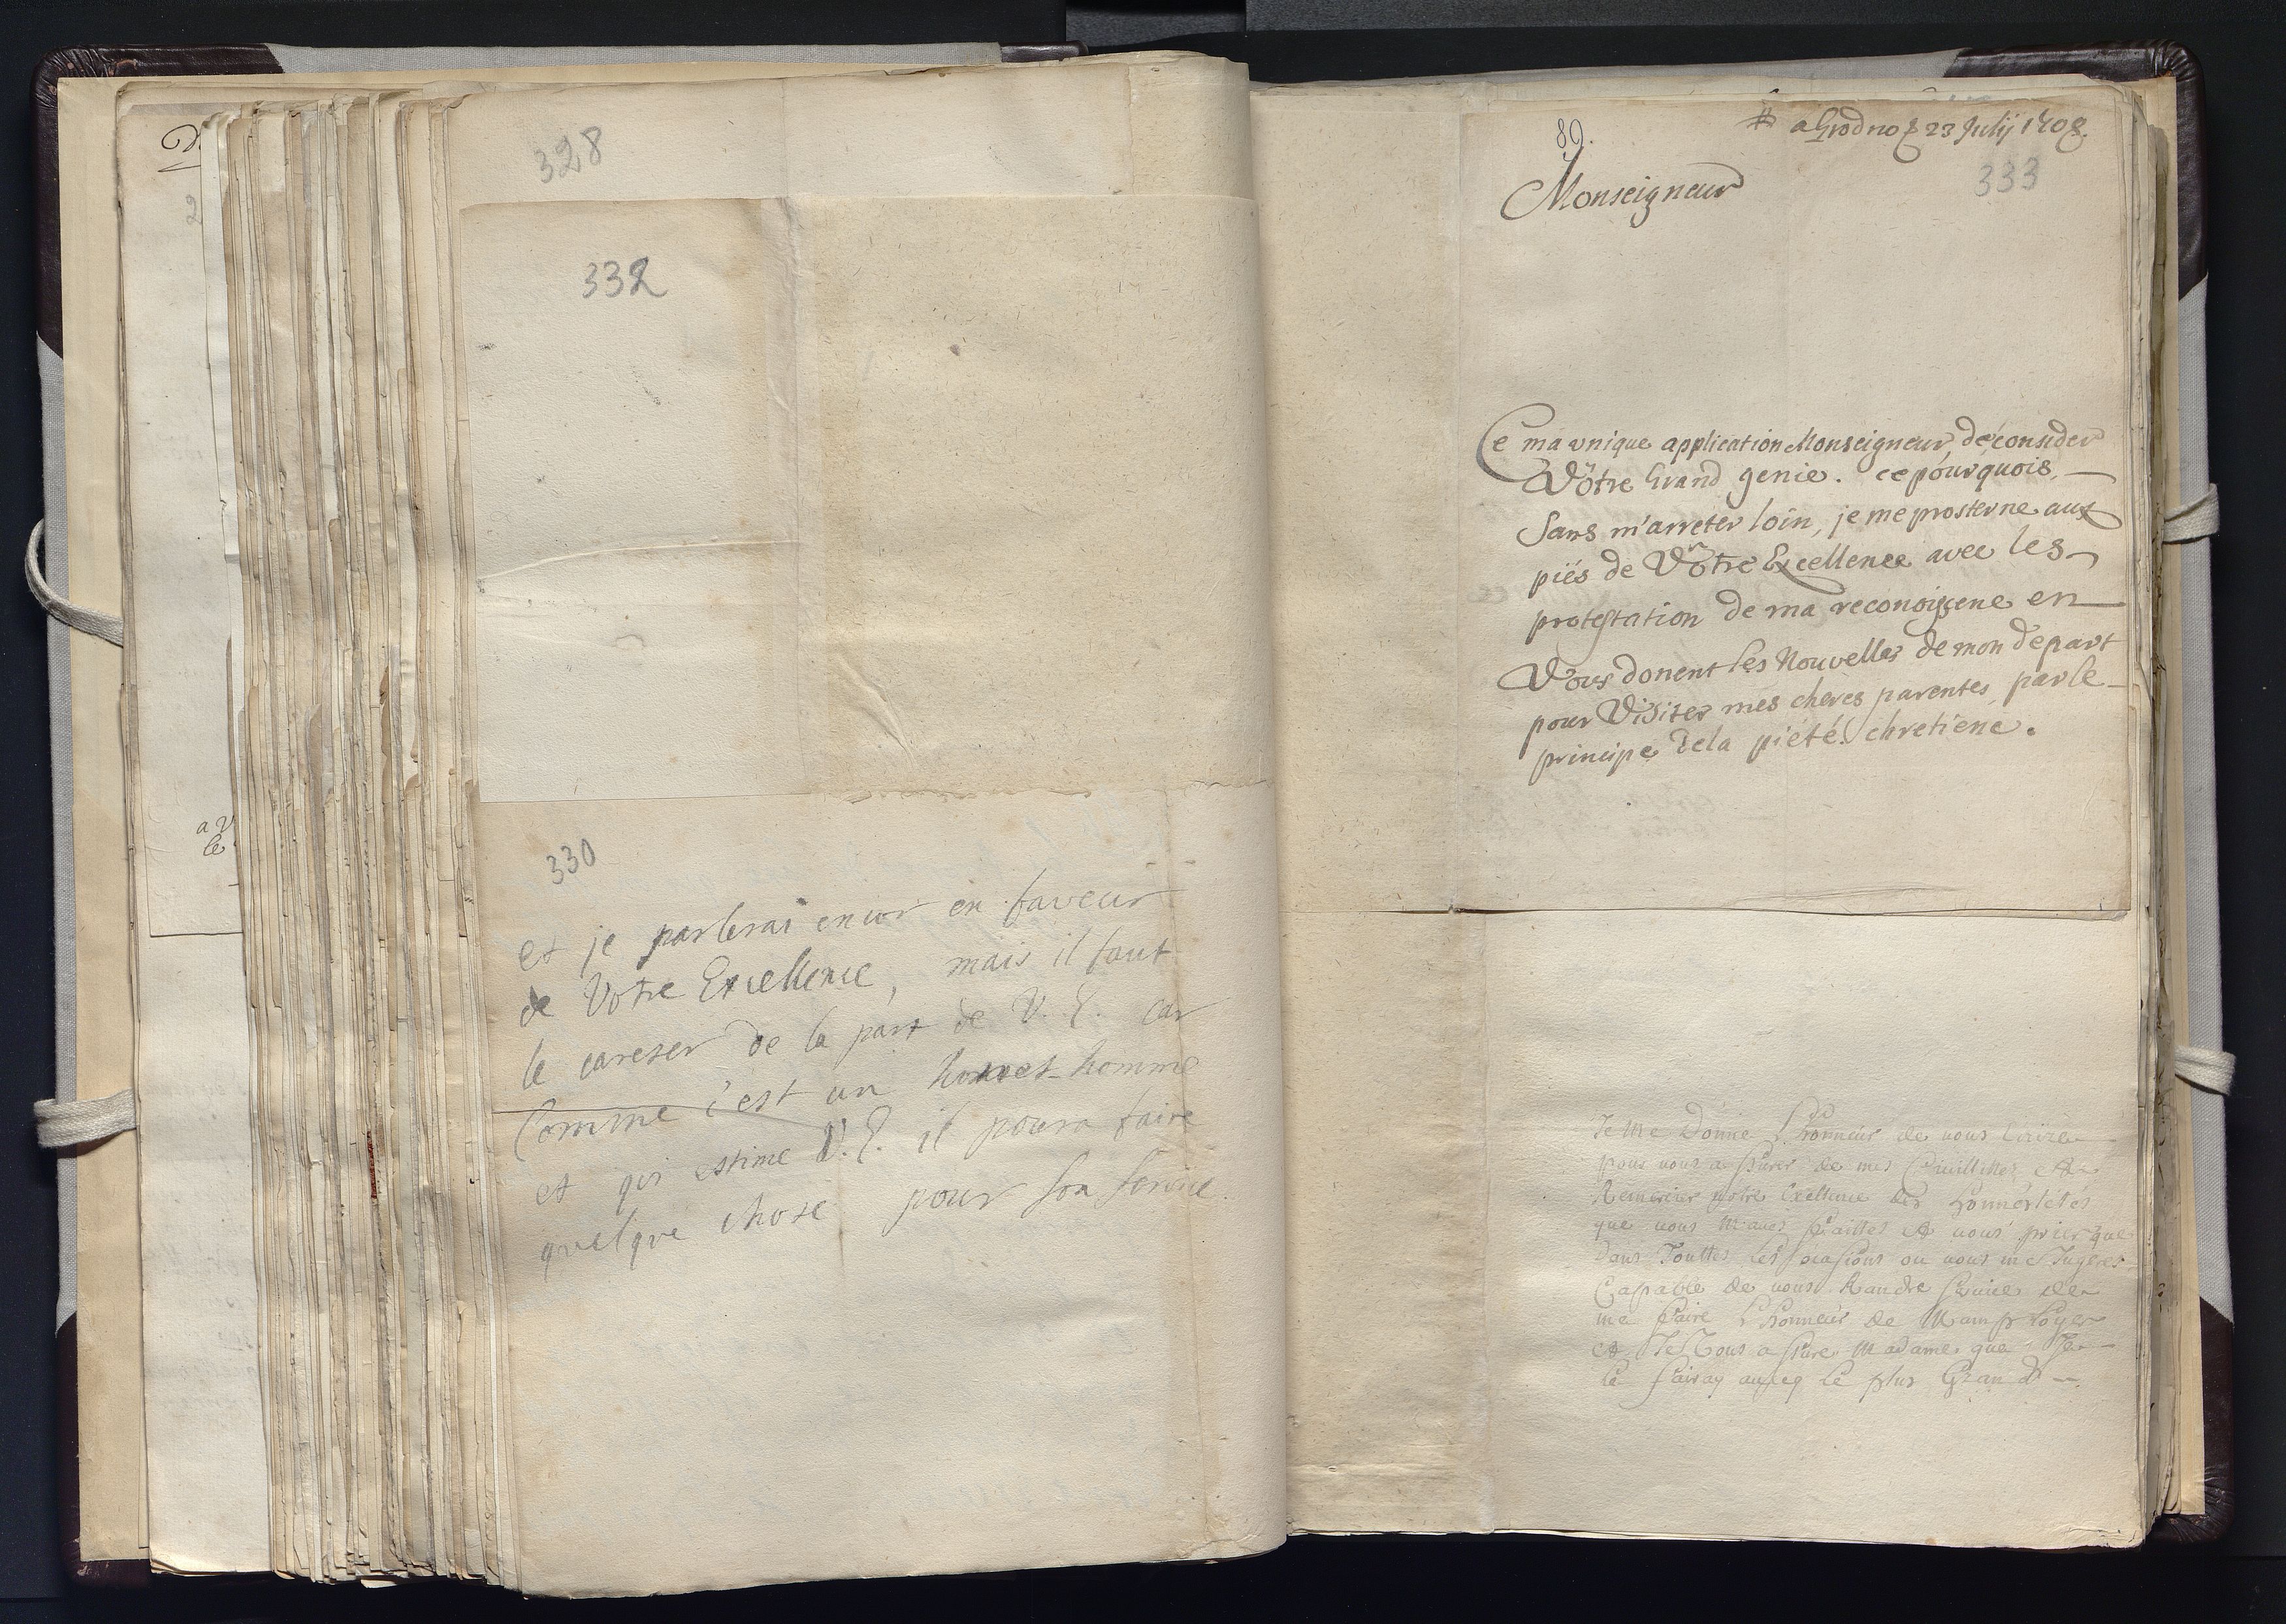 328
332
330
et je parlerai encor en faveur
de Votre Excellence, mais il faut
le careser de la part de V. E. car
Comme c'est un honnet-homme
et qui estime V. E. il poura faire
quelque chose pour son service.
89.
a Grodno 23 Julij 1708.
333
Monseigneur
Ce ma unique application Monseigneur, de consider
Vôtre Grand genie. ce pourquois,
Sans m'arreter loin, je me prosterne aux
piés de Vôtre Excellence avec les
protestation de ma reconoissene en
Vous donent les Nouvelles de mon depart
pour Visiter mes cheres parentes, par le
principe de la piété chretiene.
Je me Donne L'honneur de vous Ecrire
pour vous assurer de mes Civillittes et
Remercier votre Exellence des honnestetés
que vous m'aves faittes et vous prier que
Dans Touttes Les ocasions ou vous me Jugeres
Capable de vous Randre service de
me faire L'honneur de M'amployer
et Je Vous assure Madame que Je
le fairay avecq le plus Grand
D
2
a v
le